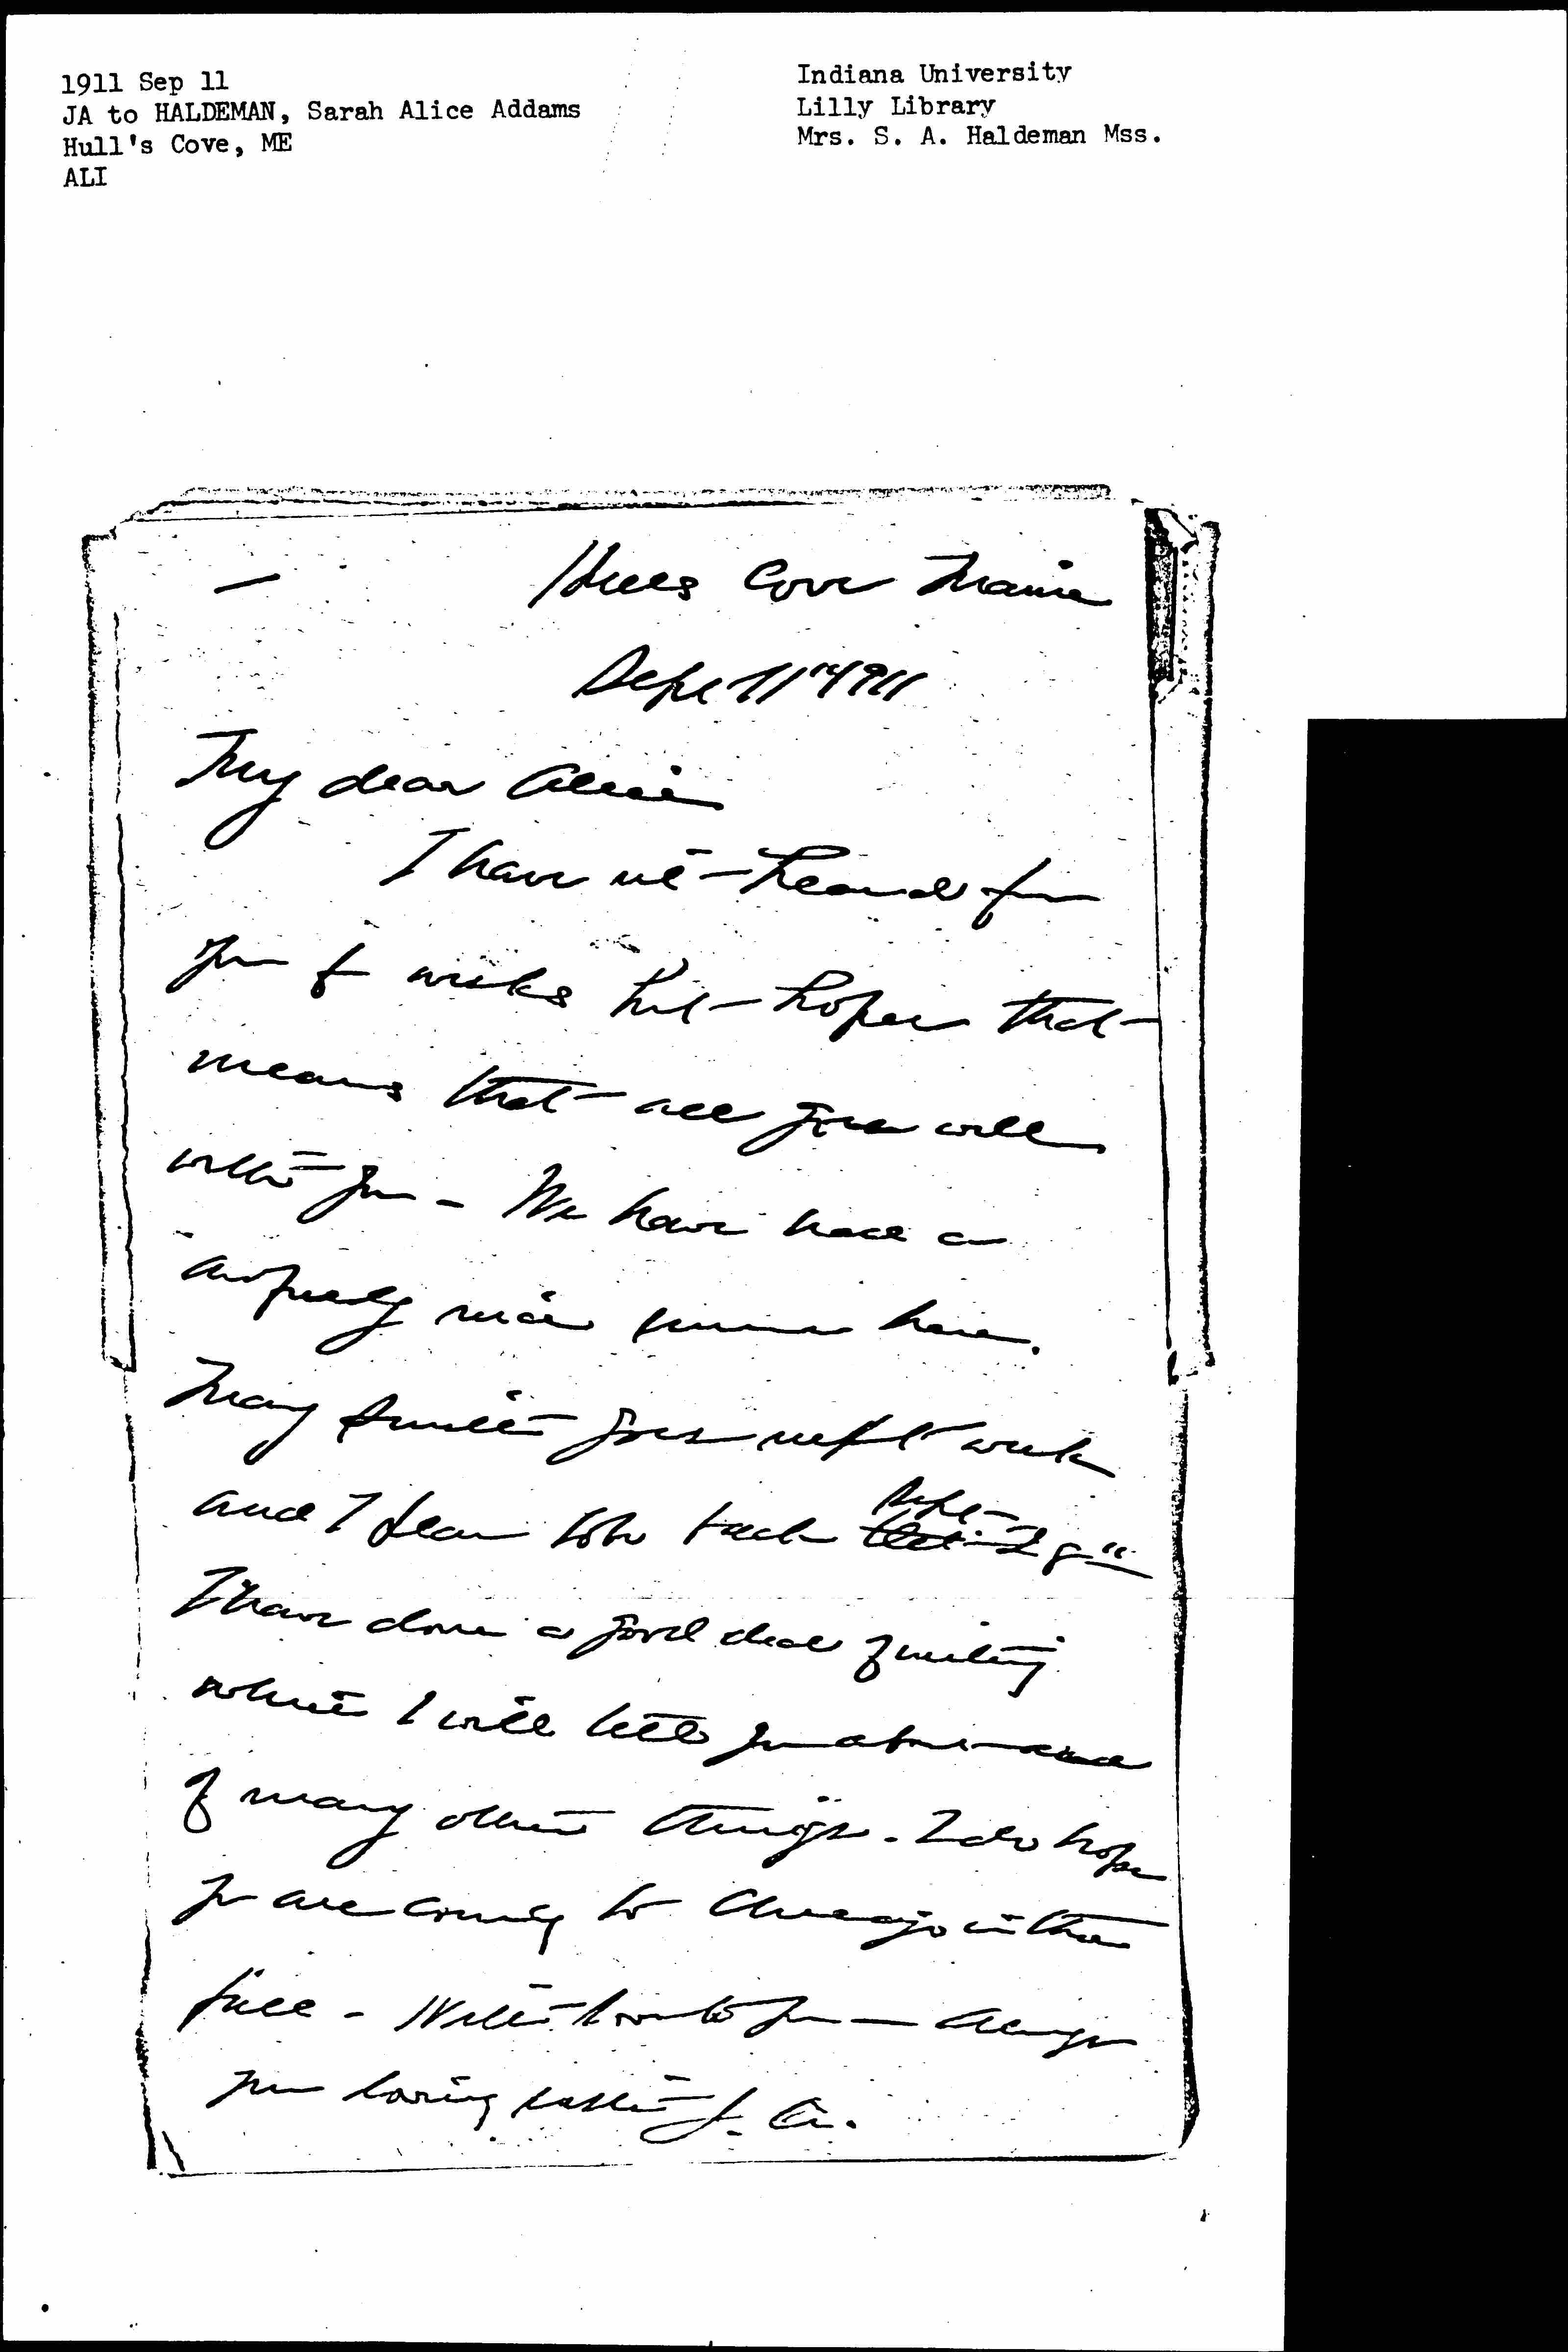 1911 Sep 11
JA to HALDEMAN, Sarah Alice Addams
Hull's Cove, ME
ALI
Indiana University
Lilly Library
Mrs. S. A. Haldeman Mss.
Hulls Cove Maine
Sept 11" 1911
My dear Alice
I have not heard from
you for weeks but hope that
means that all goes well
with you - We have had a
awfully nice summer here.
Mary Smith goes next week
and I plan to be back Sept 28"
I have done a good deal of writing
which I will tell you about and
of many other things. I do hope
you are coming to Chicago in the
fall - With love to you - always
your loving sister J. A.